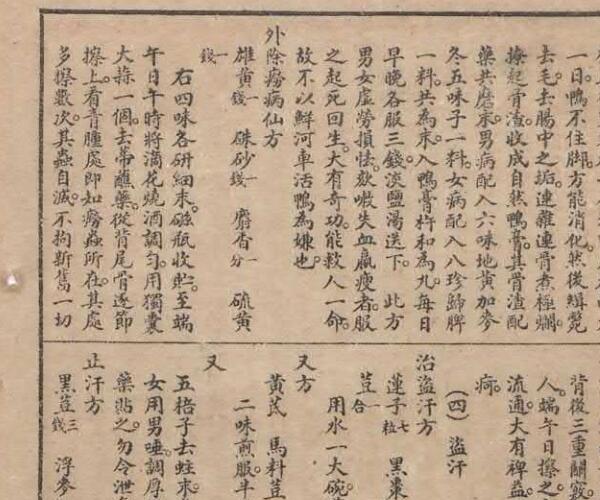 一日。鴨不住脚。方能消化。然後緝斃
去毛去腸中之垢。連雜連骨煮極爛。
撩起骨渣。收成自然鴨膏。其骨渣配
藥共磨末。男病配入六味地黃加麥
冬五味子一料。女病配入八珍歸脾
一料。共為末。入鴨膏杵和為丸。每日
早晚各服三錢。淡鹽湯送下。 此方
男女虛勞損怯。欬嗽失血羸瘦者。服
之起死回生。大有奇功。能救人一命。
故不以鮮河車活鴨為嫌也。
外除癆病仙方
雄黃一錢 硃砂一錢 麝香一分 硫黃
一錢
右四味各研細末。磁瓶收貯。至端
午日午時將滴花燒酒調勻。用獨囊
大蒜一個。去蒂蘸藥。從背尾骨逐節
擦上。看青腫處。即如癆蟲所在。其處
多擦數次。其蟲自滅。不拘新舊一切
背後三重關竅
人。端午日擦之。
流通。大有裨益。
痾。
(四) 盜汗
治盜汗方
蓮子七粒 黑棗
荳一合
用水一大碗。
又方
黃芪 馬料荳
二味煎服。半
又
五棓子去蛀。末。
女用男唾。調厚
藥貼之。勿令泄
止汗方
黑荳三錢 浮麥